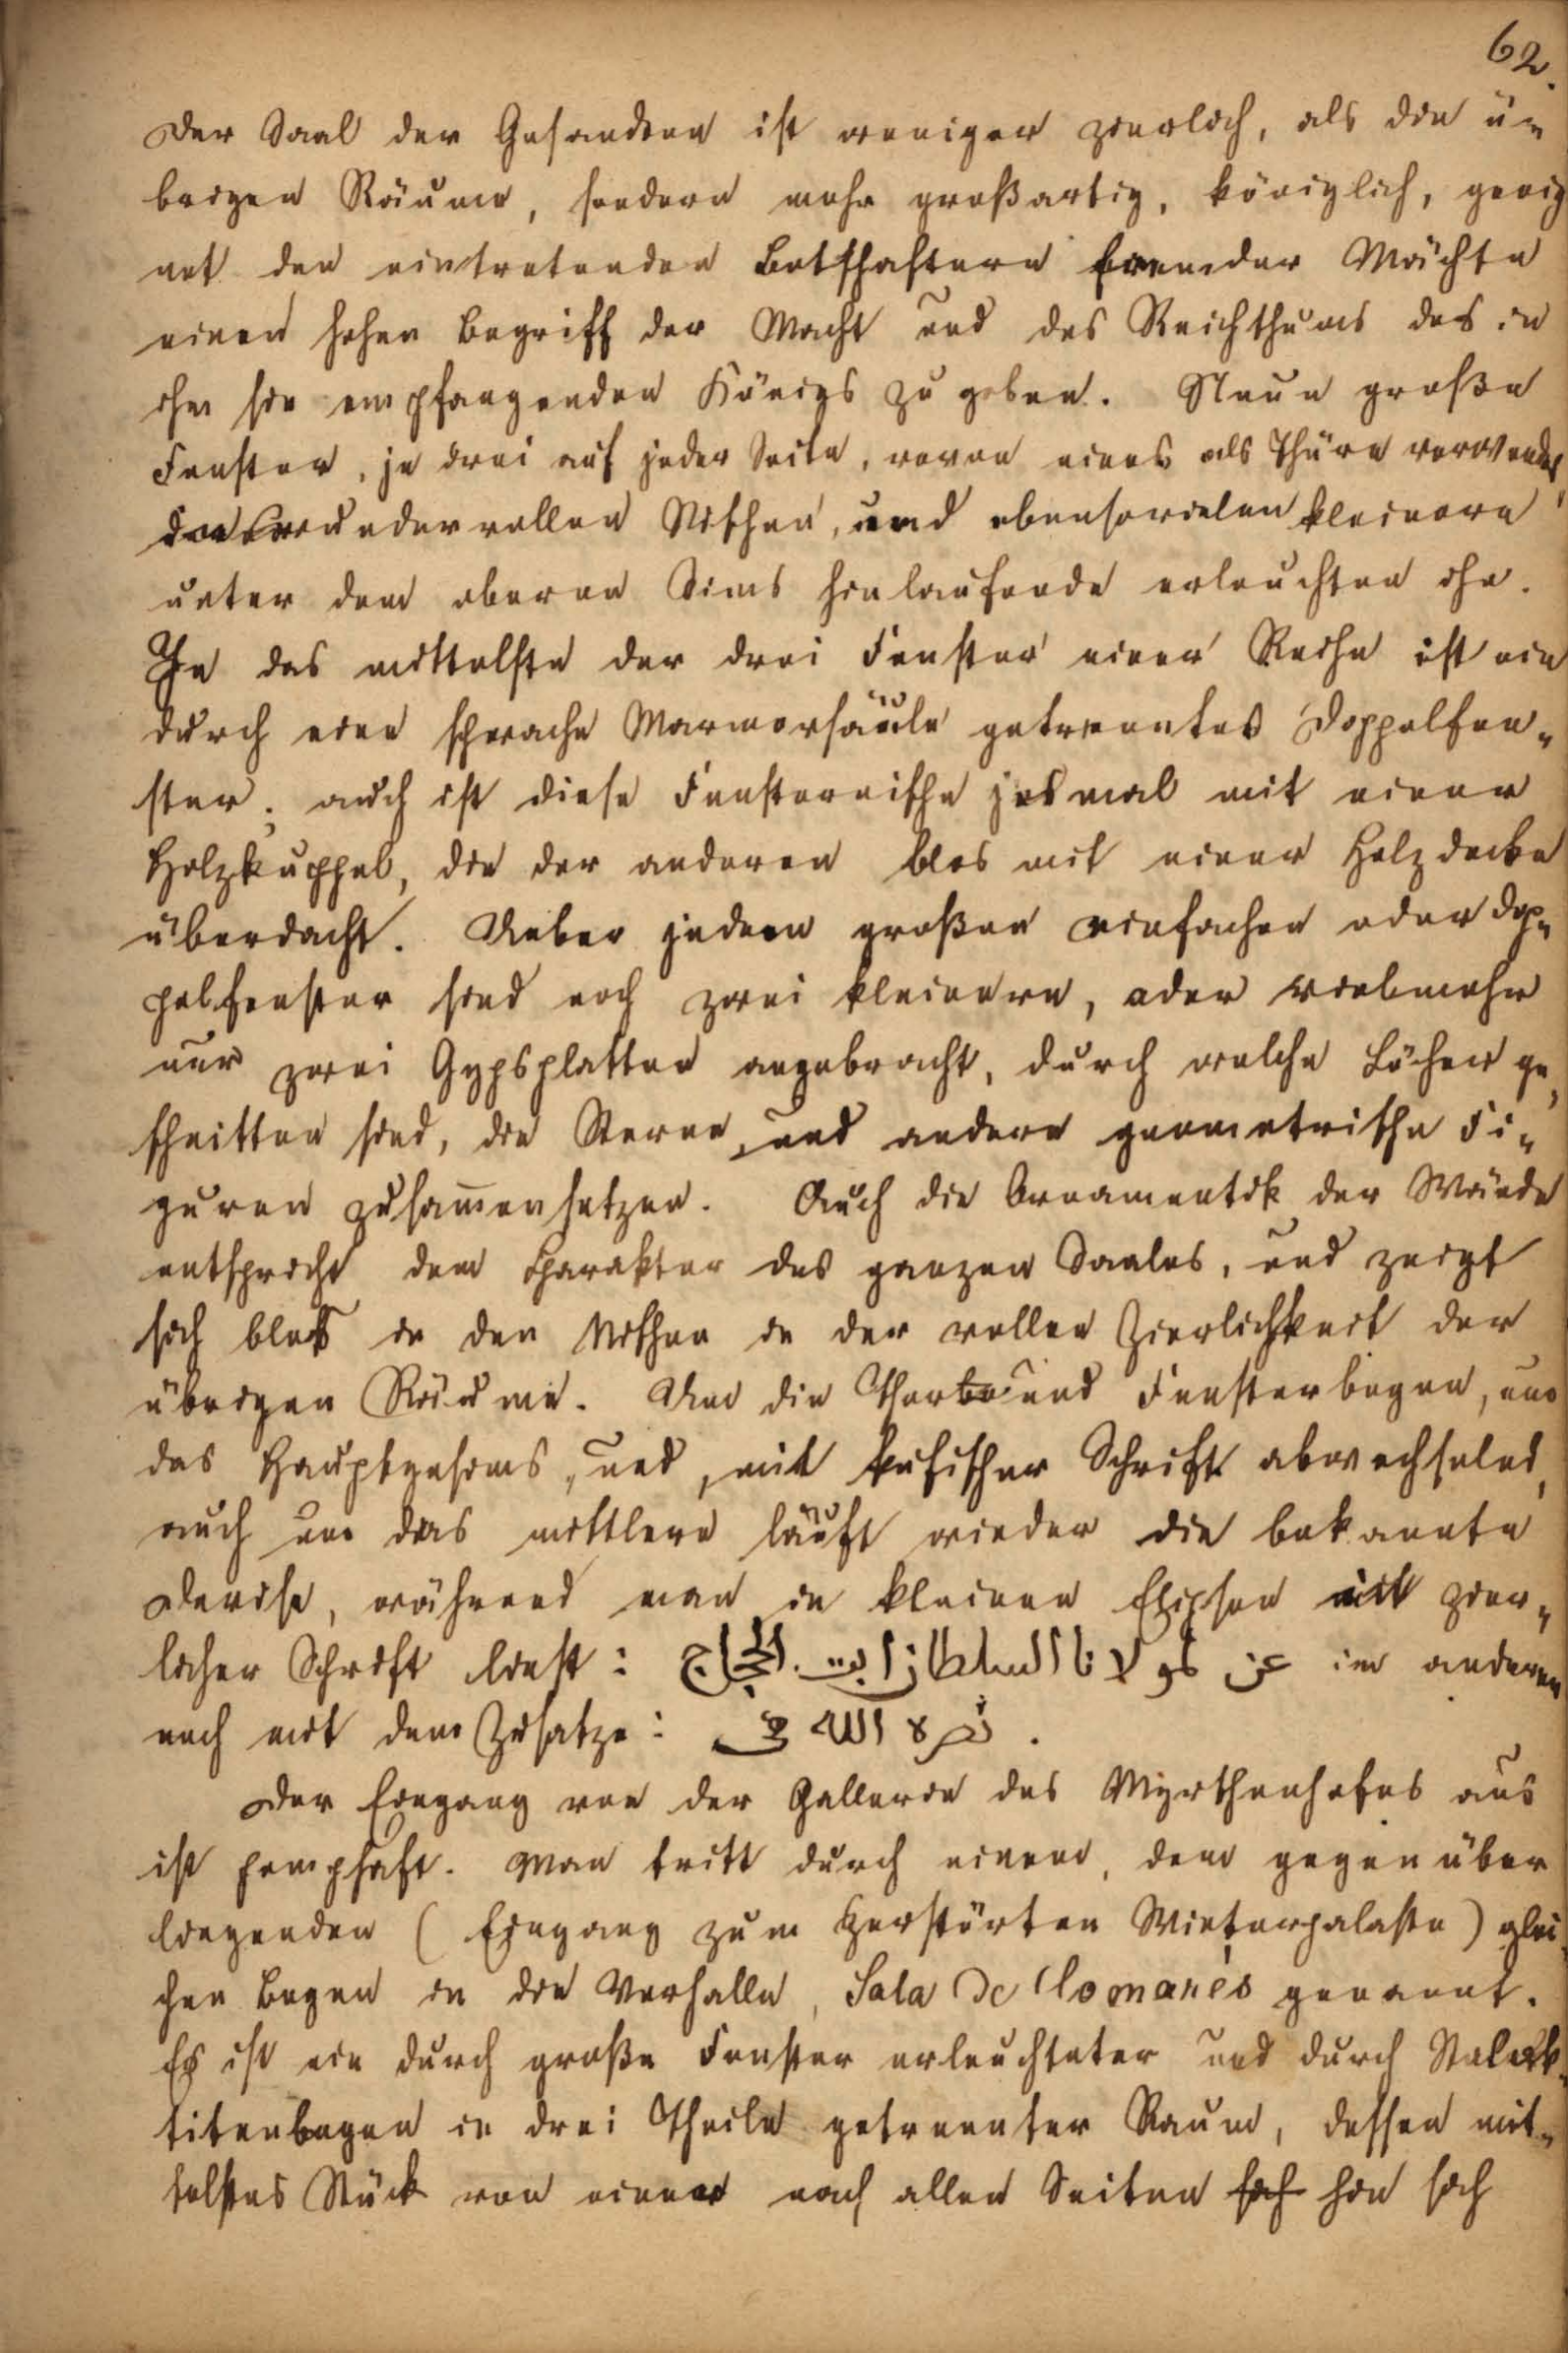 62.
Der Saal der Gesandten ist weniger zierlich, als die ü=
brigen Räume, sondern mehr großartig, königlich, geeig
net den eintretenden Botschaftern fremder Mächte
einen hohen Begriff der Macht und des Reichthums des in
ihm sie empfangenden Königs zu geben. Neun große
Fenster, je drei auf jeder Seite, wovon eines als Thüre verwendet,
in wundervollen Nischen, und ebensovielen kleinere
unter dem oberen Sims hinlaufende erleuchten ihn.
Je das mittelste der drei Fenster einer Reihe ist ein
durch eine schwache Marmorsäule getrenntes Doppelfen=
ster; auch ist diese Fensternische jedsmal mit einer
Holzkuppel, die der anderen blos mit einer Holzdecke
überdacht. Ueber jedem großen einfachen oder Dop=
pelfenster sind noch zwei kleinere, oder vielmehr
nur zwei Gypsplatten angebracht, durch welche Löcher ge=
schnitten sind, die Sterne, und andere geometrische Fi=
guren zusam̄ensetzen. Auch die Ornamentik der Wände
entspricht dem Charakter des ganzen Saales, und zeigt
sich blos in den Nischen in der vollen Zierlichkeit der
übrigen Räume. Um die Thor und Fensterbogen, um
das Hauptgesims, und, mit kufischer Schrift abwechselnd,
auch um das mittlere läuft wieder die bekannte
Devise, während man in kleinen Elipsen mit zier=
licher Schrift liest: عز لمولانا السلطان ابى الحجاج im anderen
noch mit dem Zusatze: نصره الله .
Der Eingang von der Gallerie des Myrthenhofes aus
ist pomphaft. Man tritt durch einen, dem gegenüber
liegenden (Eingang zum zerstörten Winterpalaste) glei
chen Bogen in die Vorhalle, Sala de Comares genannt.
Es ist ein durch große Fenster erleuchteter und durch Stalak=
titenbogen in drei Theile getrennter Raum, dessen mit=
telstes Stück von einer nach allen Seiten sich hin sich